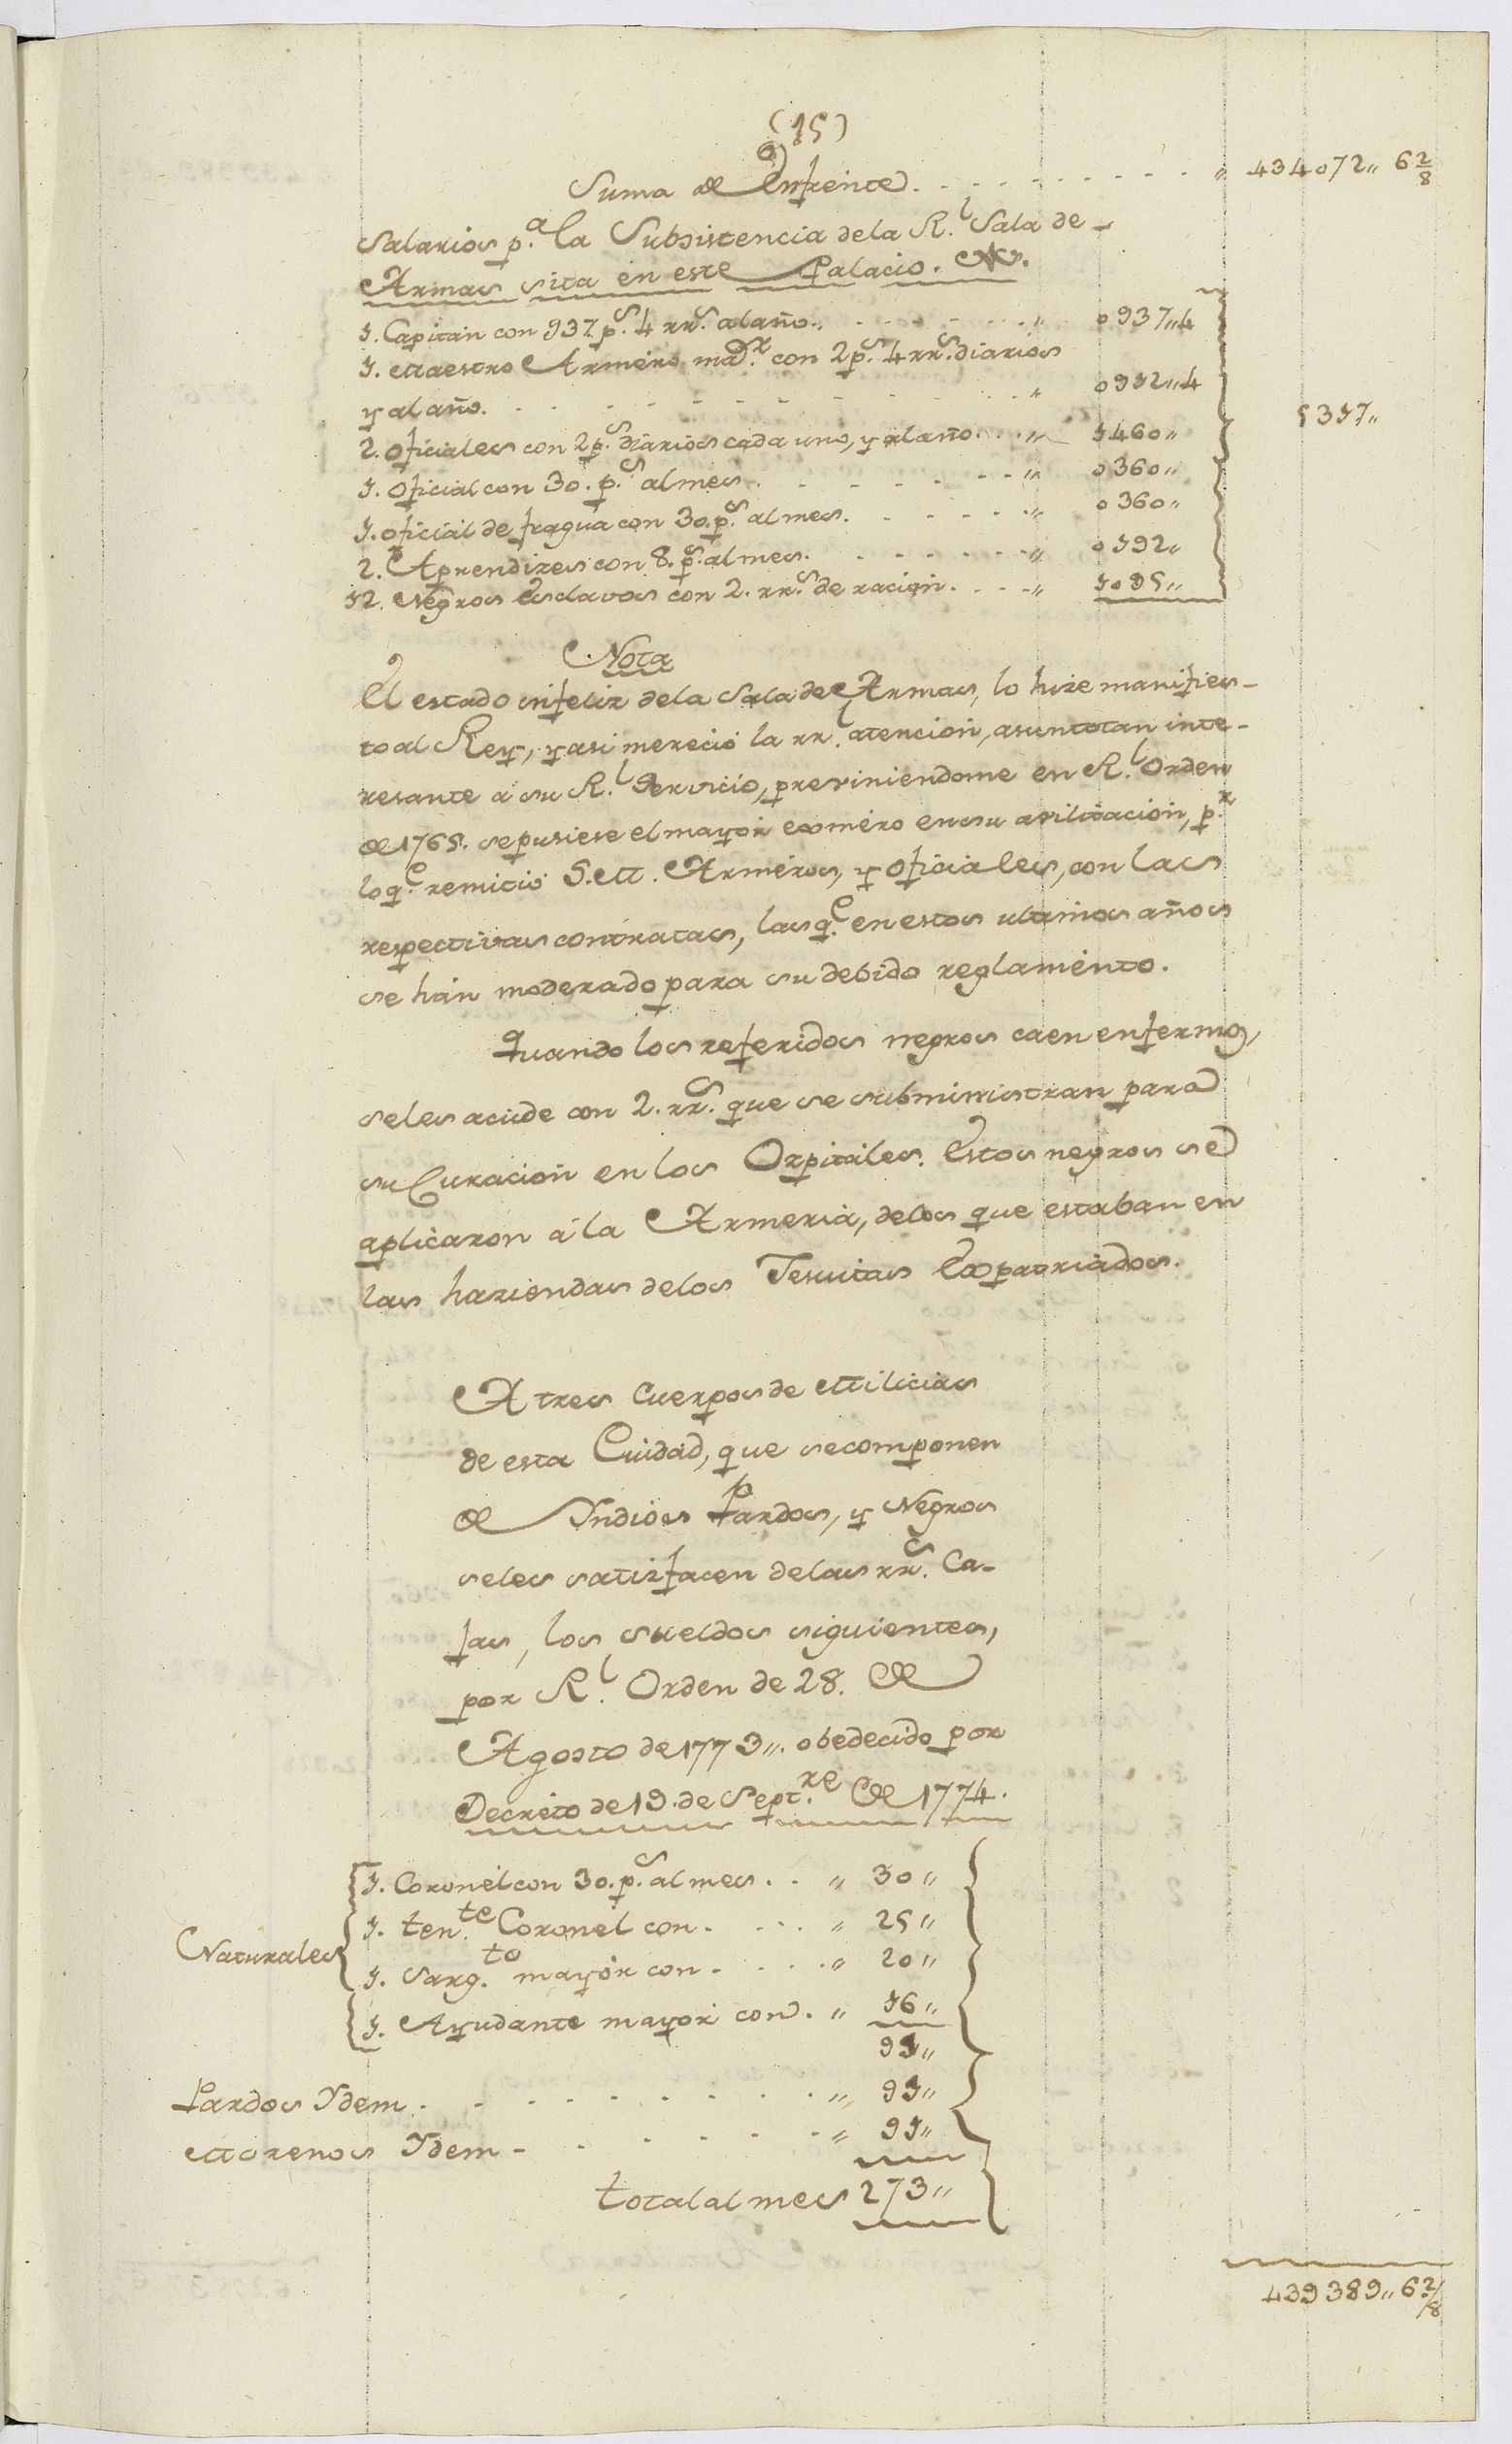 (15)
Suma de Enfrente. . . . . . . . . . " 434072,, 6 2/8
Salarios p.a la Subsistencia dela R.l Sala de
Armas sita en este Palacio.
1. Capitan con 937 p.s 4 rr.s al año. . . . . . . " 0937,,4
1. Maestro Armero ma.or con 2 p.s 4 rr.s diarios
y al año. . . . . . . . . . . . " 0912,,4
2. oficiales con 2 p.s diarios cada uno, y al año. . . " 1460,,
5317,,
1. Oficial con 30. p.s al mes . . . . . . . " 0360,,
1. oficial de fragua con 30. p.s al mes. . . . . . " 0360,,
2. Aprendizes con 8. p.s al mes. . . . . . . " 0192,,
12. Negros Esclavos con 2. rr.s de racion. . . . " 1095,,
Nota
El estado infeliz dela Sala de Armas, lo hize manifies-
to al Rey, y asi mereció la rr.l atencion, asunto tan inte-
resante á su R.l Servicio, previniendome en R.l Orden
de 1765. se pusiese el mayor exmero en su avilitacion, p.r
lo q.e remitió S.M. Armeros, y oficiales, con las
respectivas contratas, las q.e en estos ultimos años
se hán moderado para su debido reglamento.
Quando los referidos negros caen enfermos,
seles acude con 2. rr.s que se subministran para
su Curacion en los Ospitales. Estos negros se
aplicaron á la Armeria, delos que estaban en
las haziendas delos Jesuitas Expatriados.
A tres Cuerpos de Milicias
de esta Ciudad, que se componen
de Yndios Pardos, y Negros
seles satisfacen delas rr.s Ca-
jas, los sueldos siguientes,
por R.l Orden de 28. de
Agosto de 1773,,. obedecido por
Decreto de 19. de Sept.re de 1774.
1. Coronel con 30. p.s al mes . . " 30,,
1. ten.te Coronel con. . . . " 25,,
Naturales
1. Sarg.to mayor con . . . . " 20,,
1. Ayudante mayor con. " 16,,
91,,
Pardos Ydem . . . . . . . . . " 91,,
Morenos Ydem . . . . . . " 91,,
total al mes 273,,
439389,, 6 2/8